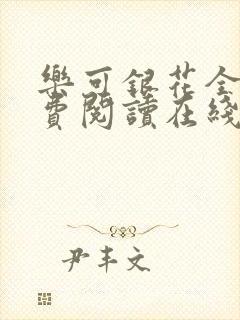 樂可銀花全
費閱讀在綫
尹丰文